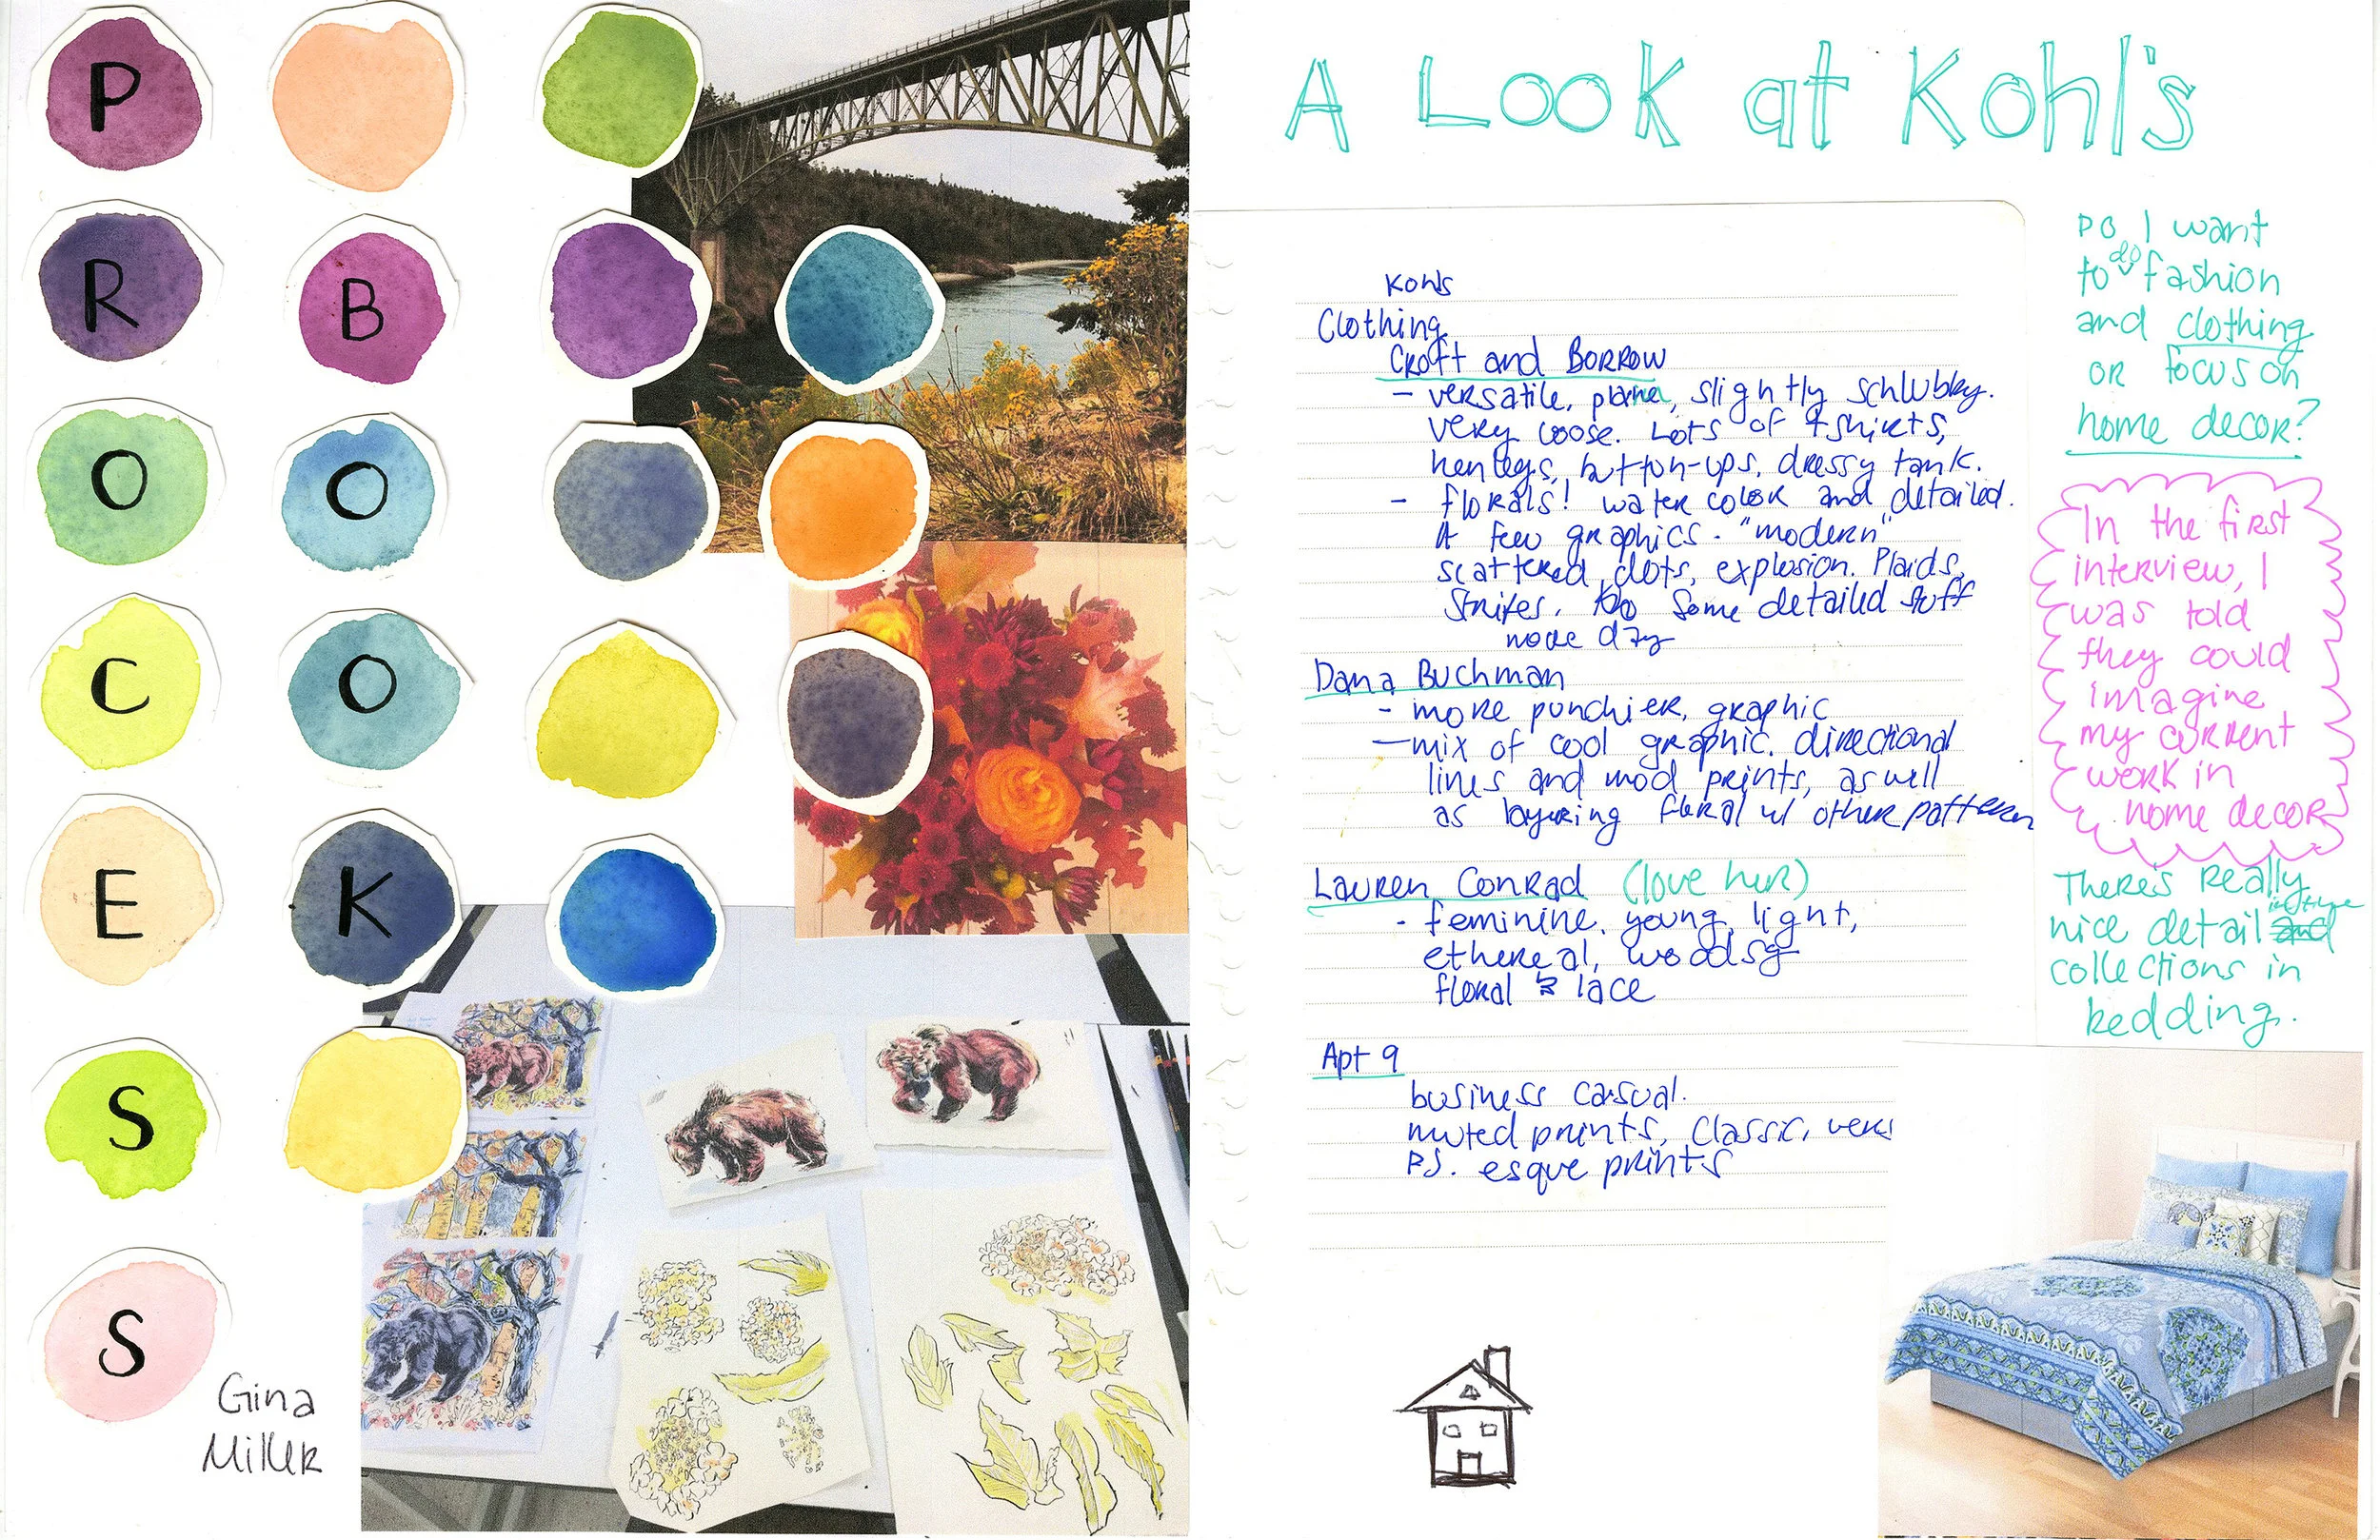 PROCESS
BOOK
Gina
Miller
A Look at Kohl's
Kohls
Clothing
Croft and Borrow
- versatile, plainer, slightly schlubby.
very loose. Lots of tshirts,
henleys, button-ups, dressy tank.
- florals! water color and detailed.
A few graphics. "modern"
scattered dots, explosion. Plaids,
Stripes. Some detailed stuff
Dana Buchman
- more punchier, graphic
- mix of cool graphic. directional
lines and mod prints, as well
as layering floral w/ other pattern
Lauren Conrad (love her)
- feminine. young, light,
ethereal, woodsy
floral & lace
Apt 9
business casual.
muted prints, Classic, vers
P.J. esque prints
Do I want
to do fashion
and clothing
or focus on
home decor?
In the first
interview, I
was told
they could
imagine
my current
work in
home decor
There's really
nice detail in the
collections in
bedding.